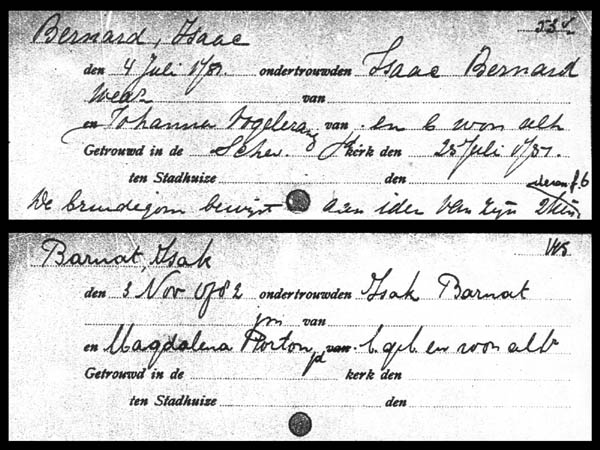 Bernard, Isaac
den 4 Juli 1781. ondertrouwden Isaac Bernard
Wedr van
en Johanna Vogelezang van en b won alh
Getrouwd in de Schev. kerk den 23 Juli 1781.
ten Stadhuize den
De bruidegom bewijst aan ider van zijn 2 kin
Barnat, Isak
den 3 Nov 1782 ondertrouwden Isak Barnat
jm van
en Magdalena Horton jd van b. geb. en won alh
Getrouwd in de kerk den
ten Stadhuize den